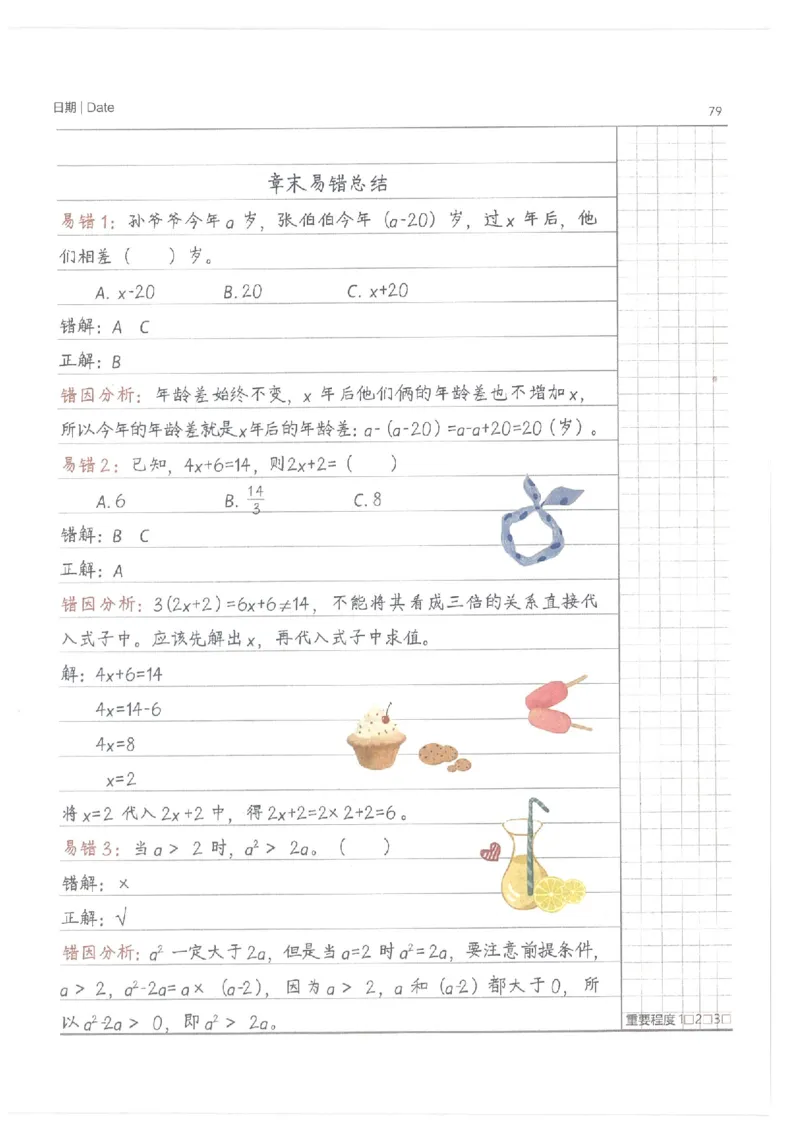 日期 | Date
79
章末易错总结
易错1：孙爷爷今年a岁，张伯伯今年（a-20）岁，过x年后，他
们相差（　　）岁。
A. x-20　　B. 20　　C. x+20
错解：A　C
正解：B
错因分析：年龄差始终不变，x年后他们俩的年龄差也不增加x，
所以今年的年龄差就是x年后的年龄差：a-（a-20）=a-a+20=20（岁）。
易错2：已知，4x+6=14，则2x+2=（　　）
A. 6　　B. 14/3　　C. 8
错解：B　C
正解：A
错因分析：3(2x+2)=6x+6≠14，不能将其看成三倍的关系直接代
入式子中。应该先解出x，再代入式子中求值。
解：4x+6=14
4x=14-6
4x=8
x=2
将x=2代入2x+2中，得2x+2=2×2+2=6。
易错3：当a＞2时，a²＞2a。（　　）
错解：×
正解：√
错因分析：a²一定大于2a，但是当a=2时a²=2a，要注意前提条件，
a＞2，a²-2a=a×（a-2），因为a＞2，a和（a-2）都大于0，所
以a²-2a＞0，即a²＞2a。
重要程度 1□2□3□